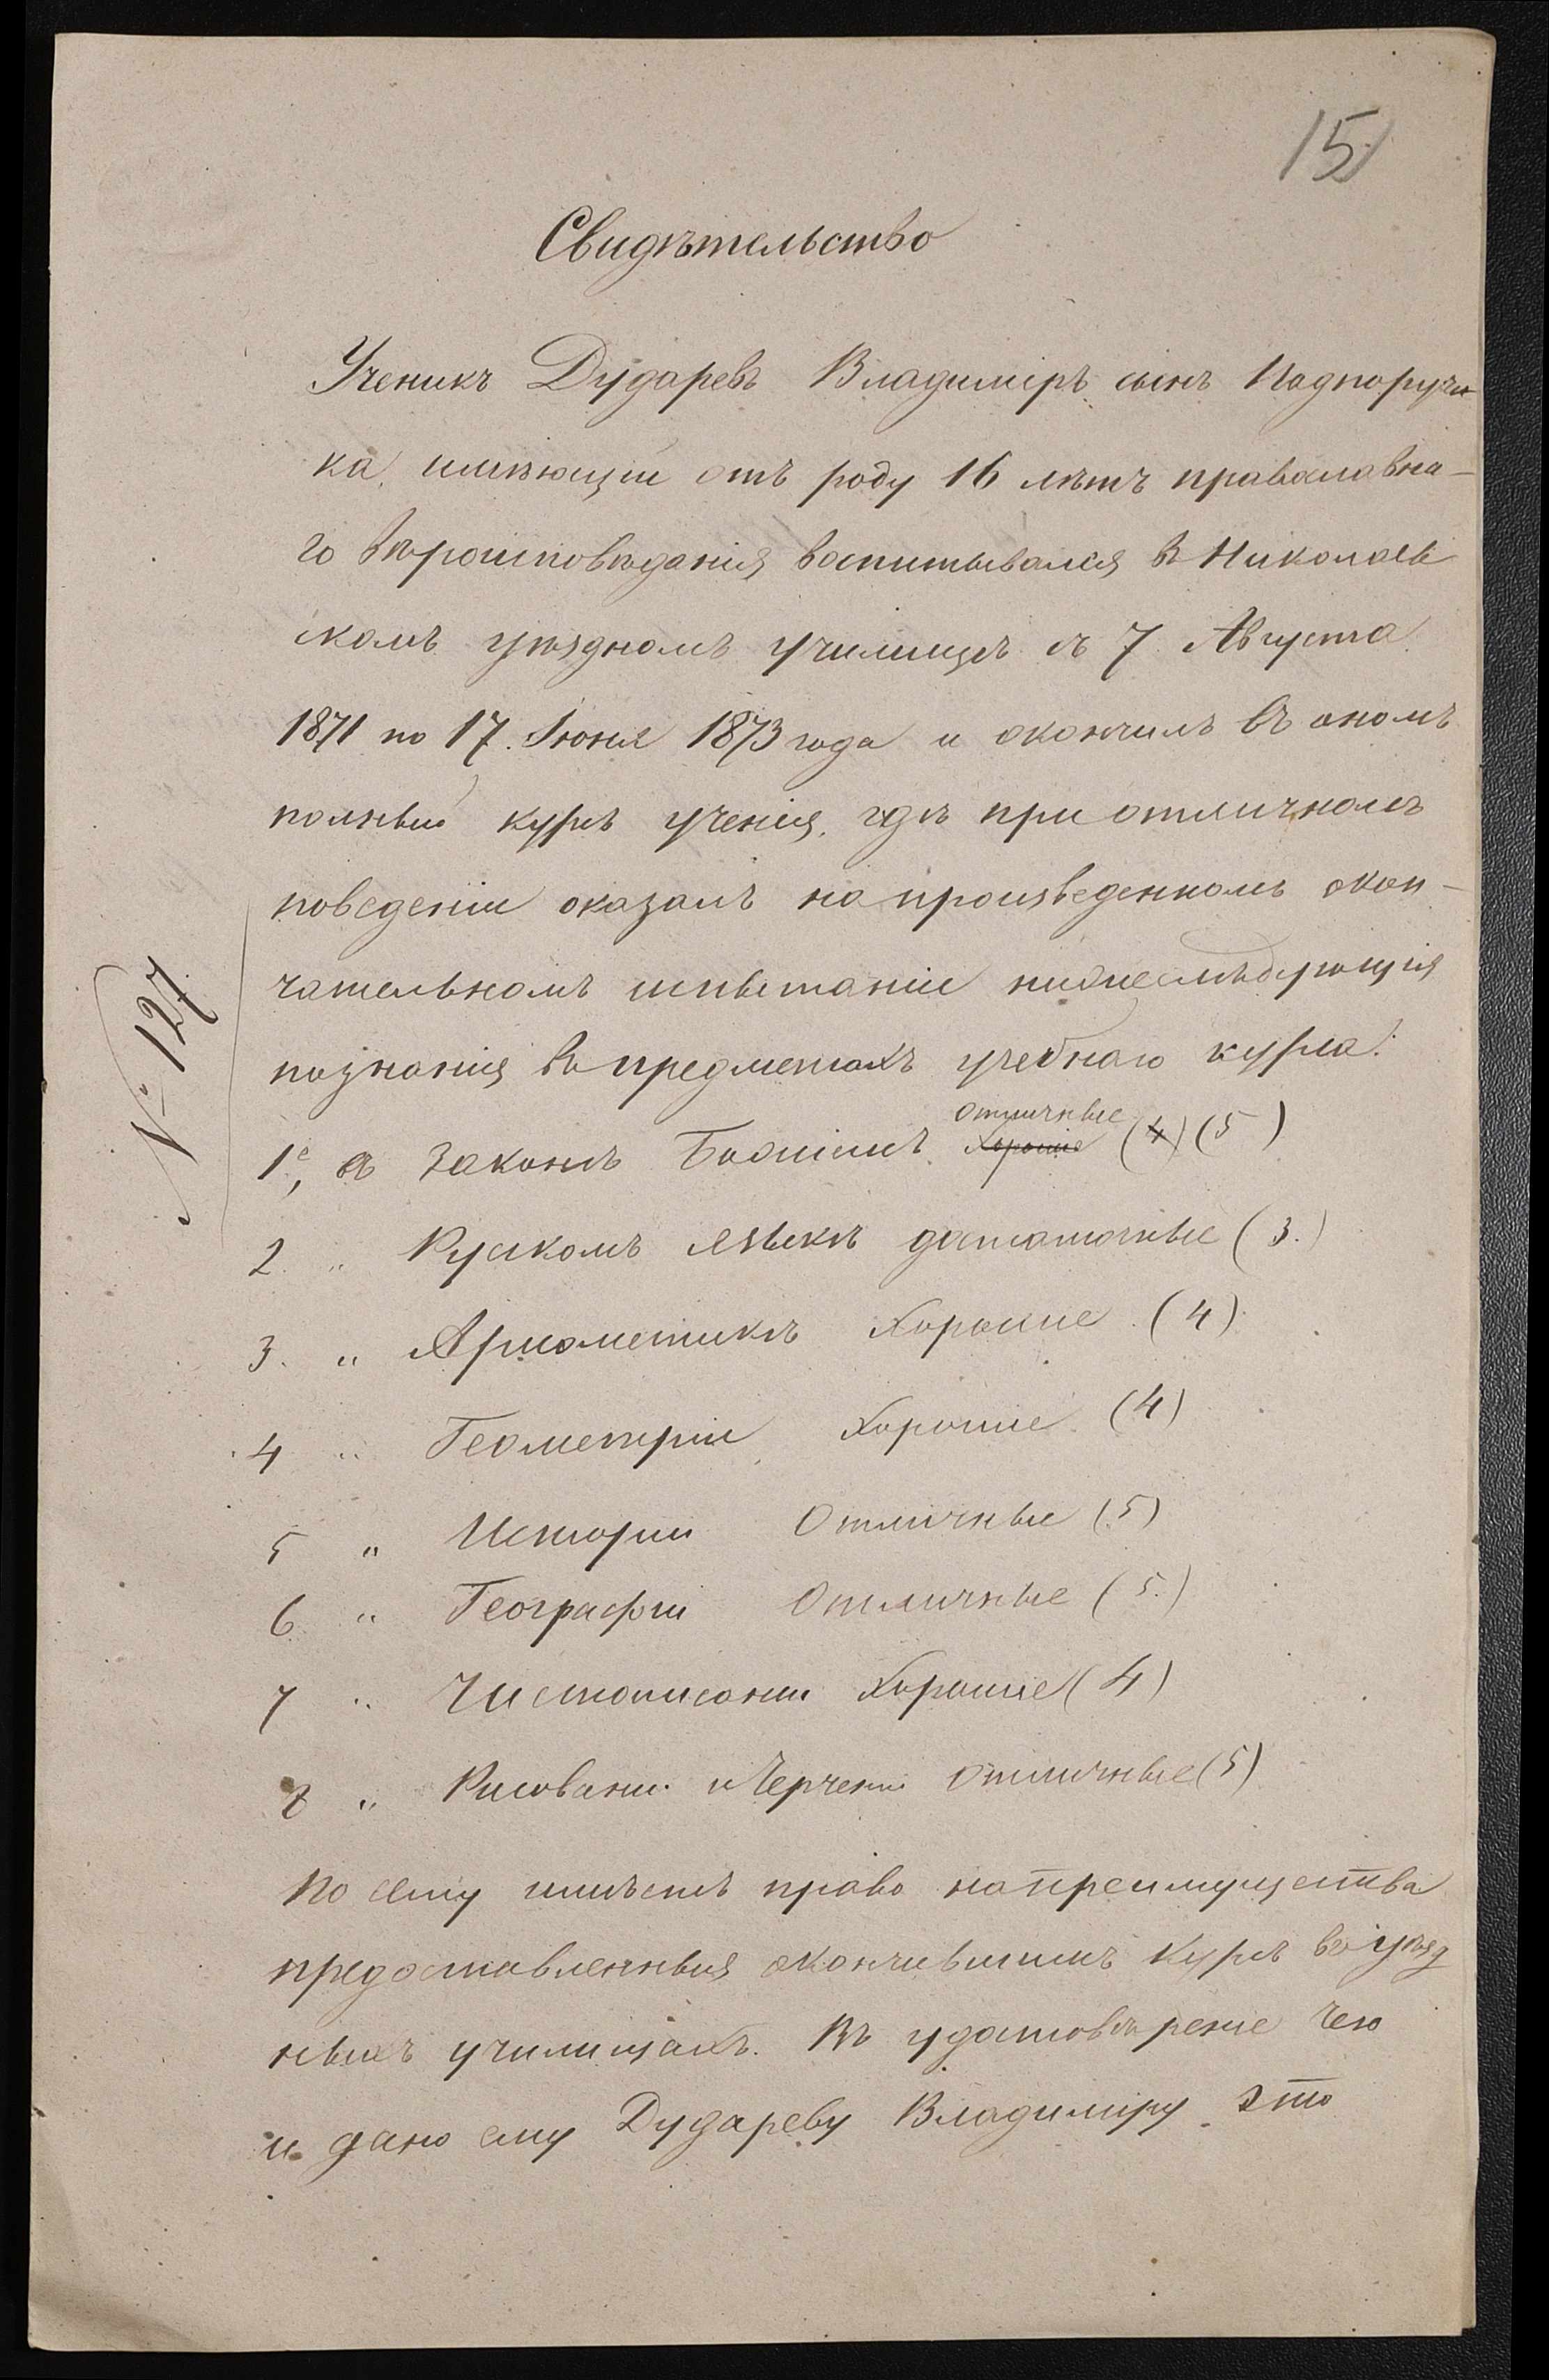 15
Свидѣтельство
Ученикъ Дударевъ Владиміръ сынъ Подпоручи-
ка, имѣющій отъ роду 16 лѣтъ православна-
го вѣроисповѣданія воспитывался въ Николаев
скомъ уѣздномъ училищѣ съ 7 Августа
1871 по 17. Іюня 1873 года и окончилъ въ ономъ
полный курсъ ученія, гдѣ при отличномъ
поведеніи оказалъ на произведенномъ окон-
чательномъ испытаніи нижеслѣдующія
познанія въ предметахъ учебнаго курса:
№ 127
отличные
1е, въ Законѣ Божіемъ хорошіе (4) (5)
2. „ Русскомъ языкѣ достаточные (3.)
3. „ Ариѳметикѣ хорошіе (4)
4 „ Геометріи хорошіе (4)
5 „ Исторіи Отличные (5)
6 „ Географіи Отличные (5.)
7 „ Чистописаніи хорошіе (4)
8 „ Рисованіи и Черченіи Отличные (5)
По сему имѣетъ право на преимущества
предоставленныя окончившимъ курсъ въ уѣзд
ныхъ училищахъ. Въ удостовѣреніе чего
и дано ему Дудареву Владиміру это